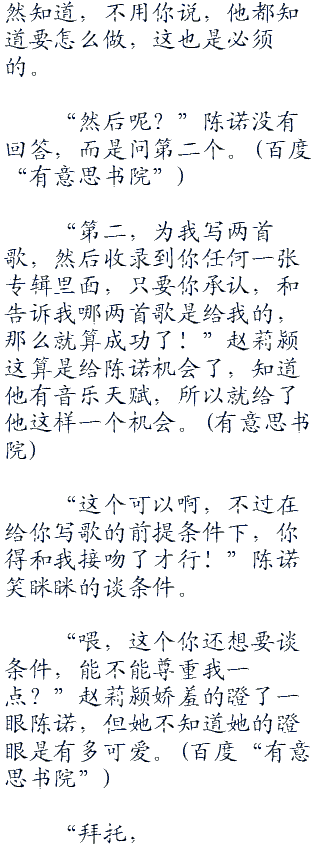 然知道，不用你说，他都知
道要怎么做，这也是必须
的。
“然后呢？”陈诺没有
回答，而是问第二个。(百度
“有意思书院”)
“第二，为我写两首
歌，然后收录到你任何一张
专辑里面，只要你承认，和
告诉我哪两首歌是给我的，
那么就算成功了！”赵莉颖
这算是给陈诺机会了，知道
他有音乐天赋，所以就给了
他这样一个机会。(有意思书
院)
“这个可以啊，不过在
给你写歌的前提条件下，你
得和我接吻了才行！”陈诺
笑眯眯的谈条件。
“喂，这个你还想要谈
条件，能不能尊重我一
点？”赵莉颖娇羞的瞪了一
眼陈诺，但她不知道她的瞪
眼是有多可爱。(百度“有意
思书院”)
“拜托，